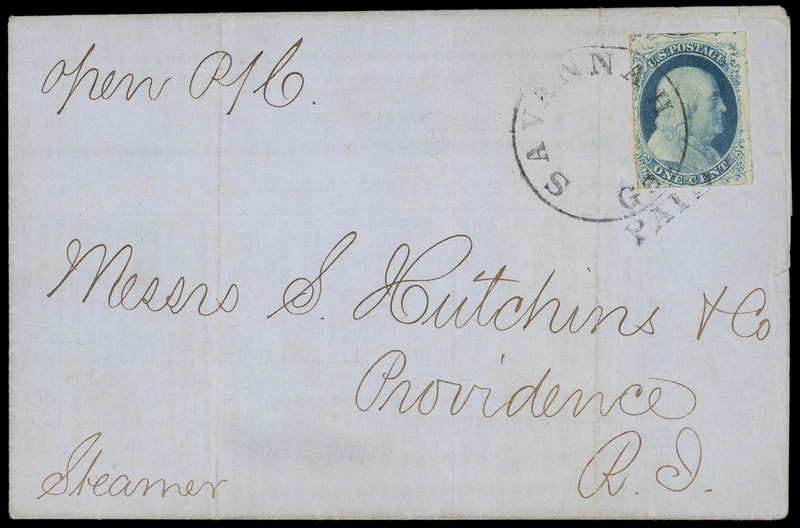 open P/C.
U.S. POSTAGE
ONE CENT
SAVANNAH
Ga
PAID
Messrs S. Hutchins & Co
Providence
R. I.
Steamer